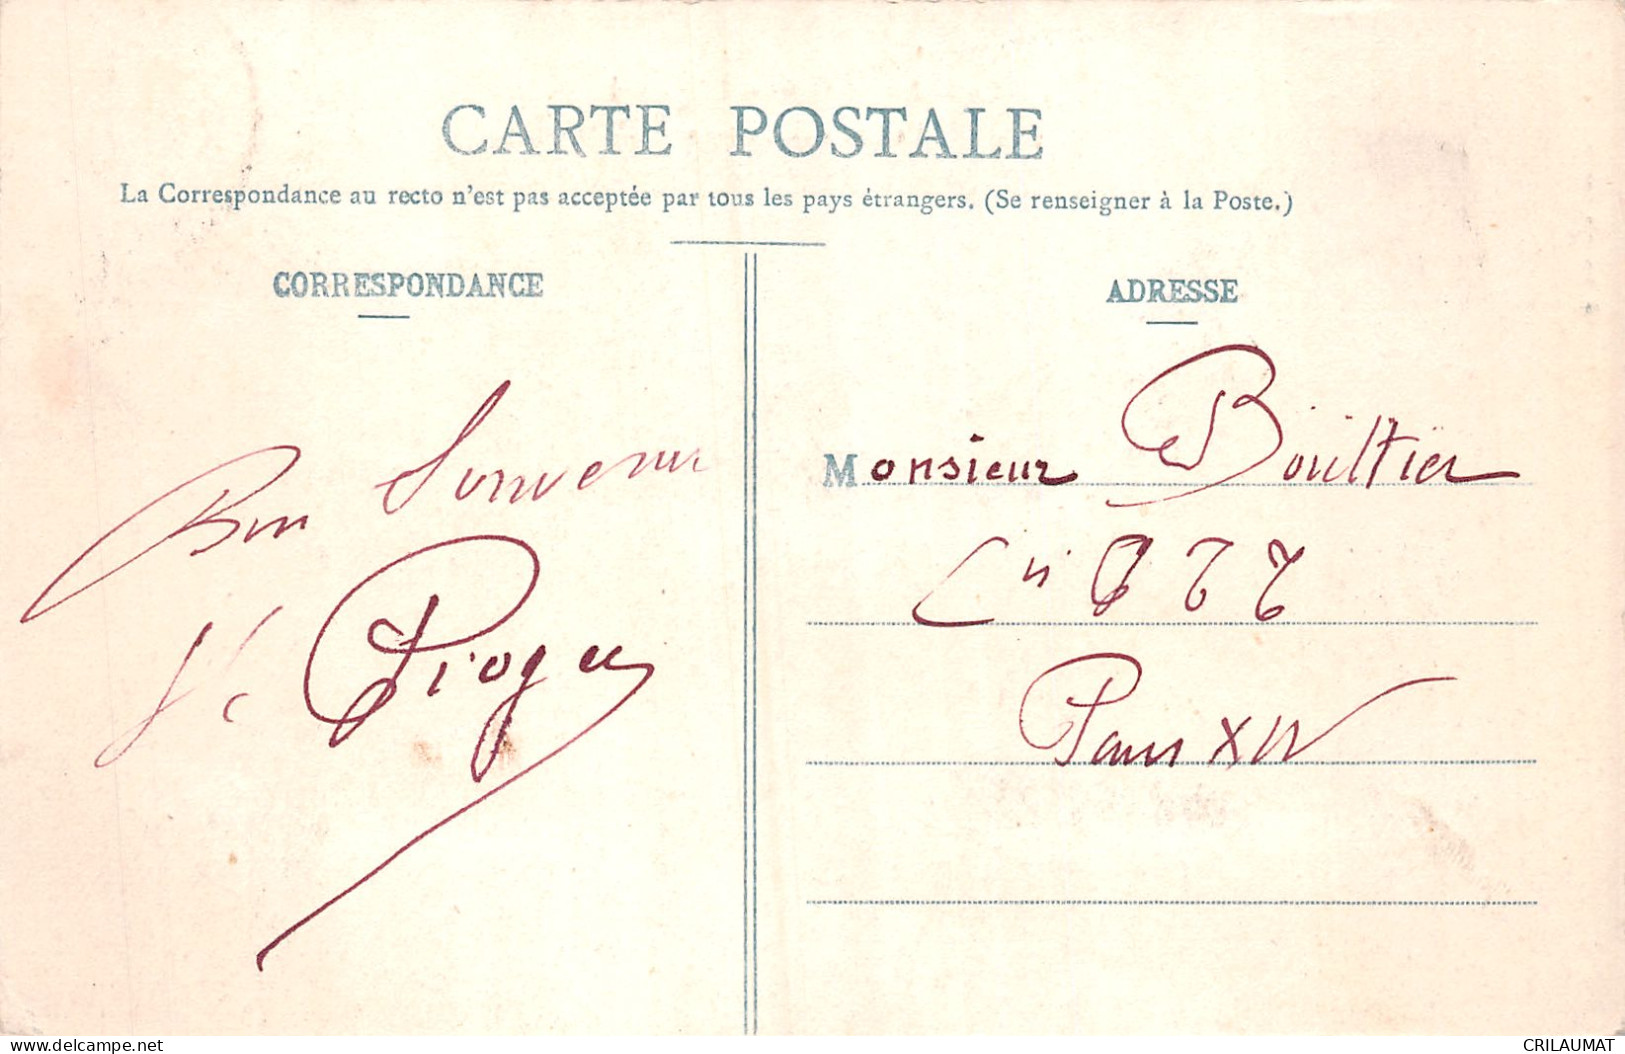 CARTE POSTALE
La Correspondance au recto n'est pas acceptée par tous les pays étrangers. (Se renseigner à la Poste.)
CORRESPONDANCE
Bon Souvenir
ADRESSE
Monsieur Bouiltier
Paris XIV
delcampe.net
CRILAUMAT